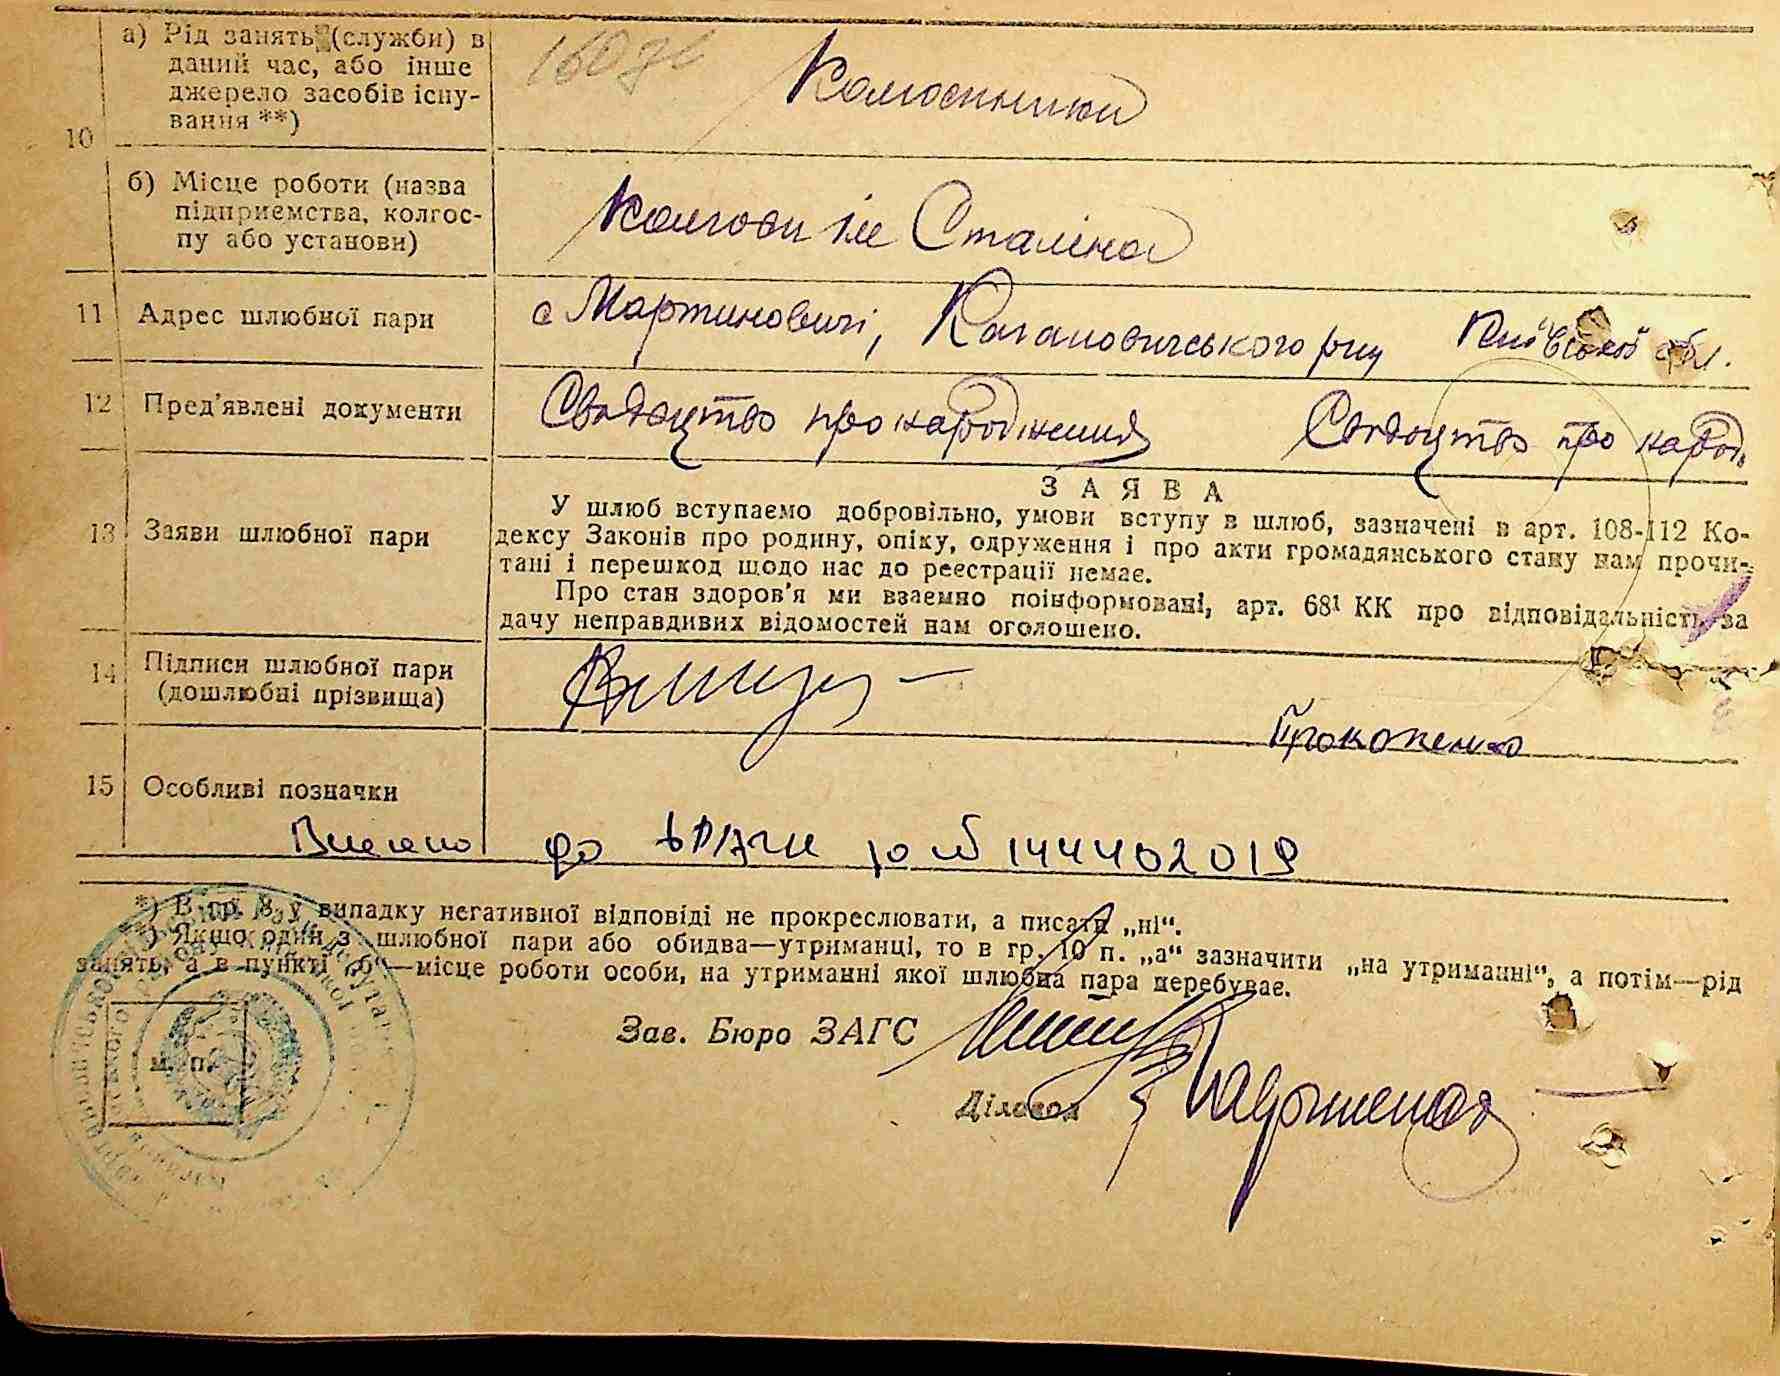 10
а) Рід занять (служби) в
даний час, або інше
джерело засобів існу-
вання **)
Колгоспники
б) Місце роботи (назва
підприємства, колгос-
пу або установи)
Колгосп ім Сталіна
11 Адрес шлюбної пари
с Мартиновичі, Кагановичського р-ну Київської обл.
12 Пред'явлені документи
Свідоцтво про народження Свідоцтво про народ.
13 Заяви шлюбної пари
ЗАЯВА
У шлюб вступаємо добровільно, умови вступу в шлюб, зазначені в арт. 108-112 Ко-
дексу Законів про родину, опіку, одруження і про акти громадянського стану нам прочи-
тані і перешкод щодо нас до реєстрації немає.
Про стан здоров'я ми взаємно поінформовані, арт. 68¹ КК про відповідальність за
дачу неправдивих відомостей нам оголошено.
14 Підписи шлюбної пари
(дошлюбні прізвища)
Прокопенко
15 Особливі позначки
Внесено до ДРАЦС
*) В гр. 8 у випадку негативної відповіді не прокреслювати, а писати „ні“.
) Якщо один з шлюбної пари або обидва—утриманці, то в гр. 10 п. „а“ зазначити „на утриманні“, а потім—рід
занять, а в пункті „б“—місце роботи особи, на утриманні якої шлюбна пара перебуває.
Зав. Бюро ЗАГС
Діловод
м. п.